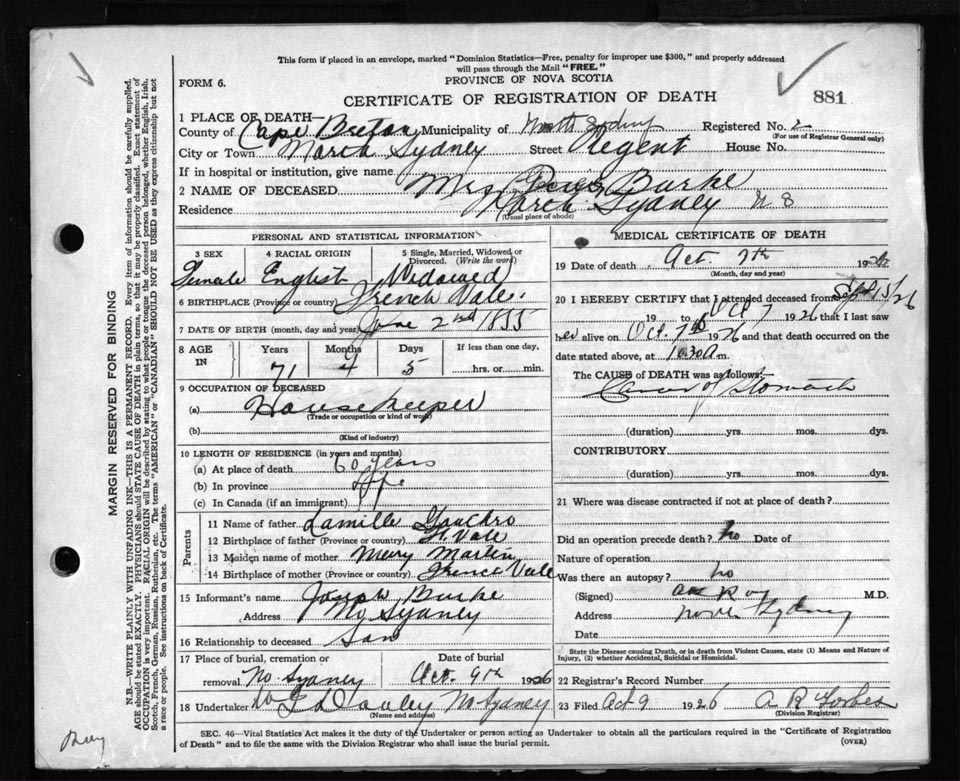 This form if placed in an envelope, marked "Dominion Statistics—Free, penalty for improper use $300," and properly addressed
will pass through the Mail "FREE."
FORM 6.
PROVINCE OF NOVA SCOTIA
CERTIFICATE OF REGISTRATION OF DEATH
881
1 PLACE OF DEATH—
County of Cape Breton Municipality of North Sydney Registered No. 2
(For use of Registrar General only)
City or Town North Sydney Street Regent House No.
If in hospital or institution, give name
2 NAME OF DECEASED Mrs Burke
Residence North Sydney N S
(Usual place of abode)
PERSONAL AND STATISTICAL INFORMATION
3 SEX 4 RACIAL ORIGIN 5 Single, Married, Widowed or Divorced. (Write the word)
Female English Widowed
6 BIRTHPLACE (Province or country) French Vale.
7 DATE OF BIRTH (month, day and year) June 2nd 1855
8 AGE IN Years Months Days If less than one day,
71 4 5 hrs. or min.
9 OCCUPATION OF DECEASED
(a) Housekeeper
(Trade or occupation or kind of work)
(b)
(Kind of industry)
10 LENGTH OF RESIDENCE (in years and months)
(a) At place of death 60 years
(b) In province Life
(c) In Canada (if an immigrant)
Parents
11 Name of father
12 Birthplace of father (Province or country) Fr. Vale
13 Maiden name of mother Mary Martin
14 Birthplace of mother (Province or country) French Vale
15 Informant's name Burke
Address No Sydney
16 Relationship to deceased Son
17 Place of burial, cremation or removal No Sydney Date of burial Oct. 9th 1926
18 Undertaker No Sydney
(Name and address)
MEDICAL CERTIFICATE OF DEATH
19 Date of death Oct. 7th 1926
(Month, day and year)
20 I HEREBY CERTIFY that I attended deceased from Sept 15/26
19 to Oct 7 1926 that I last saw
her alive on Oct. 7th 1926 and that death occurred on the
date stated above, at 10.30 a m.
The CAUSE of DEATH was as follows:
Cancer of Stomach
(duration) yrs. mos. dys.
CONTRIBUTORY
(duration) yrs. mos. dys.
21 Where was disease contracted if not at place of death?
Did an operation precede death? No Date of
Nature of operation
Was there an autopsy? No
(Signed) Roy M.D.
Address North Sydney
Date
State the Disease causing Death, or in death from Violent Causes, state (1) Means and Nature of
Injury, (2) whether Accidental, Suicidal or Homicidal.
22 Registrar's Record Number
23 Filed Oct 9 1926 A R Forbes
(Division Registrar)
SEC. 46—Vital Statistics Act makes it the duty of the Undertaker or person acting as Undertaker to obtain all the particulars required in the "Certificate of Registration
of Death" and to file the same with the Division Registrar who shall issue the burial permit.
(OVER)
MARGIN RESERVED FOR BINDING
N.B.—WRITE PLAINLY WITH UNFADING INK—THIS IS A PERMANENT RECORD. Every item of information should be carefully supplied.
AGE should be stated EXACTLY. PHYSICIANS should STATE CAUSE OF DEATH in plain terms, so that it may be properly classified. Exact statement of
OCCUPATION is very important. RACIAL ORIGIN will be described by stating to what people or tongue the deceased person belonged, whether English, Irish,
Scotch, French, German, Russian, Ruthenian, etc. The terms "AMERICAN" or "CANADIAN" SHOULD NOT BE USED as they express citizenship but not
a race or people. See instructions on back of Certificate.